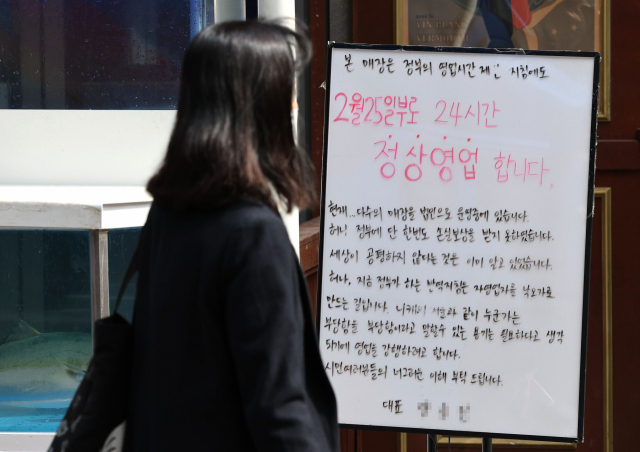 본 매장은 정부의 영업시간 제한 지침에도
2월25일부로 24시간
정상영업 합니다.
현재... 다수의 매장을 법인으로 운영중에 있습니다.
허나 정부에 단 한번도 손실보상을 받지 못하였습니다.
세상이 공평하지 않다는 것은 이미 알고 있었습니다.
허나, 지금 정부가 하는 방역지침은 자영업자를 낙오자로
만드는 길입니다. 누군가는
부당함을 부당함이라고 말할수 있는 용기는 필요하다고 생각
되기에 영업을 강행하려고 합니다.
시민여러분들의 너그러운 이해 부탁 드립니다.
대표